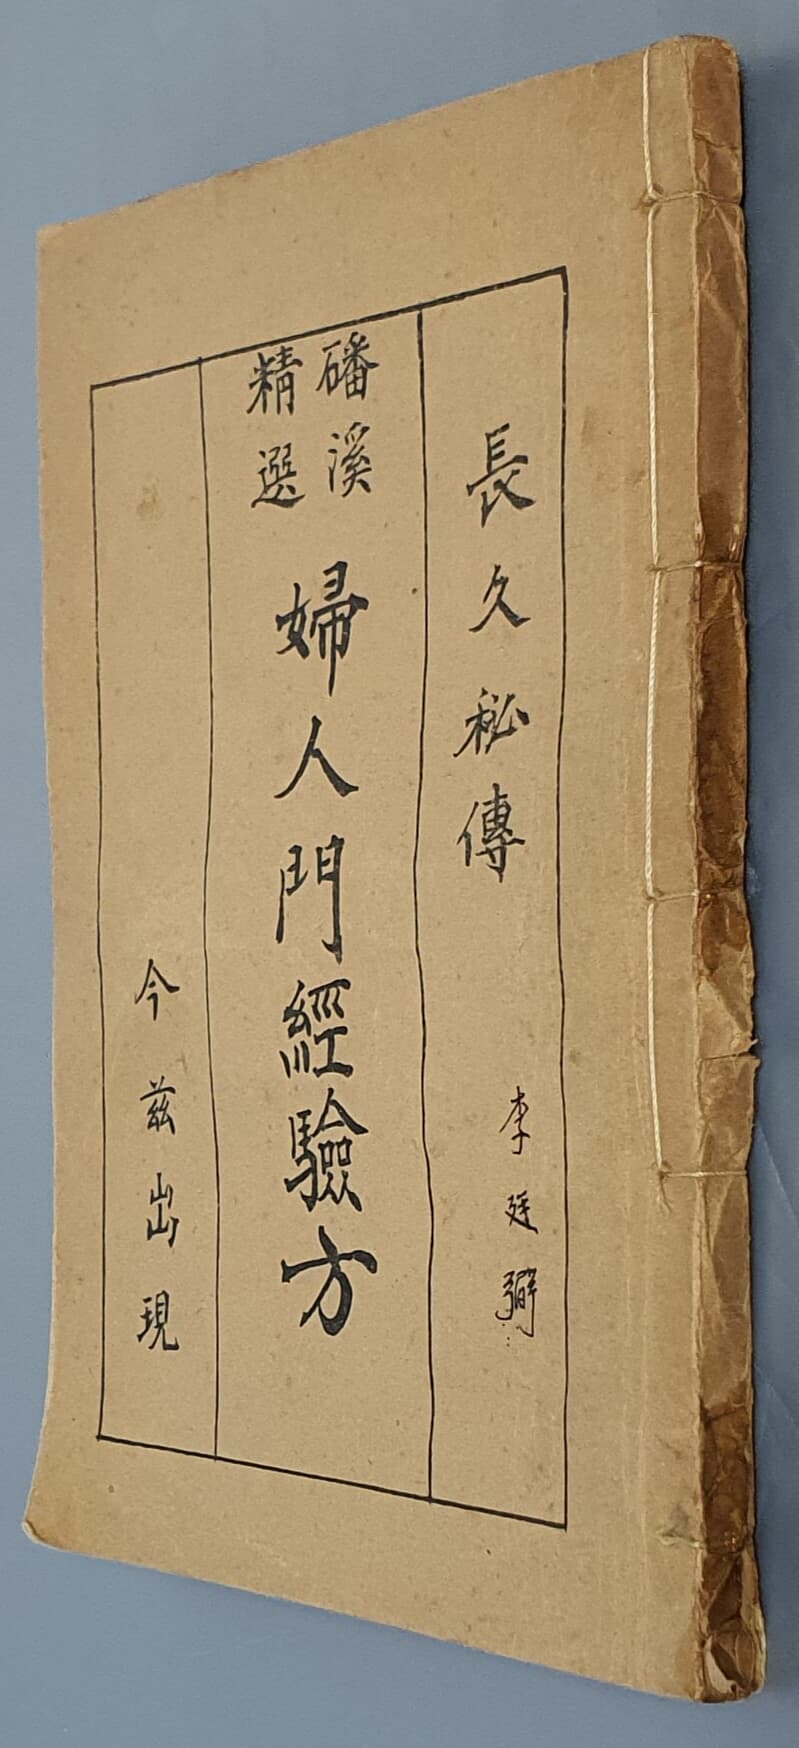 長久秘傳
李廷
磻溪
精選
婦人門經驗方
今兹出現